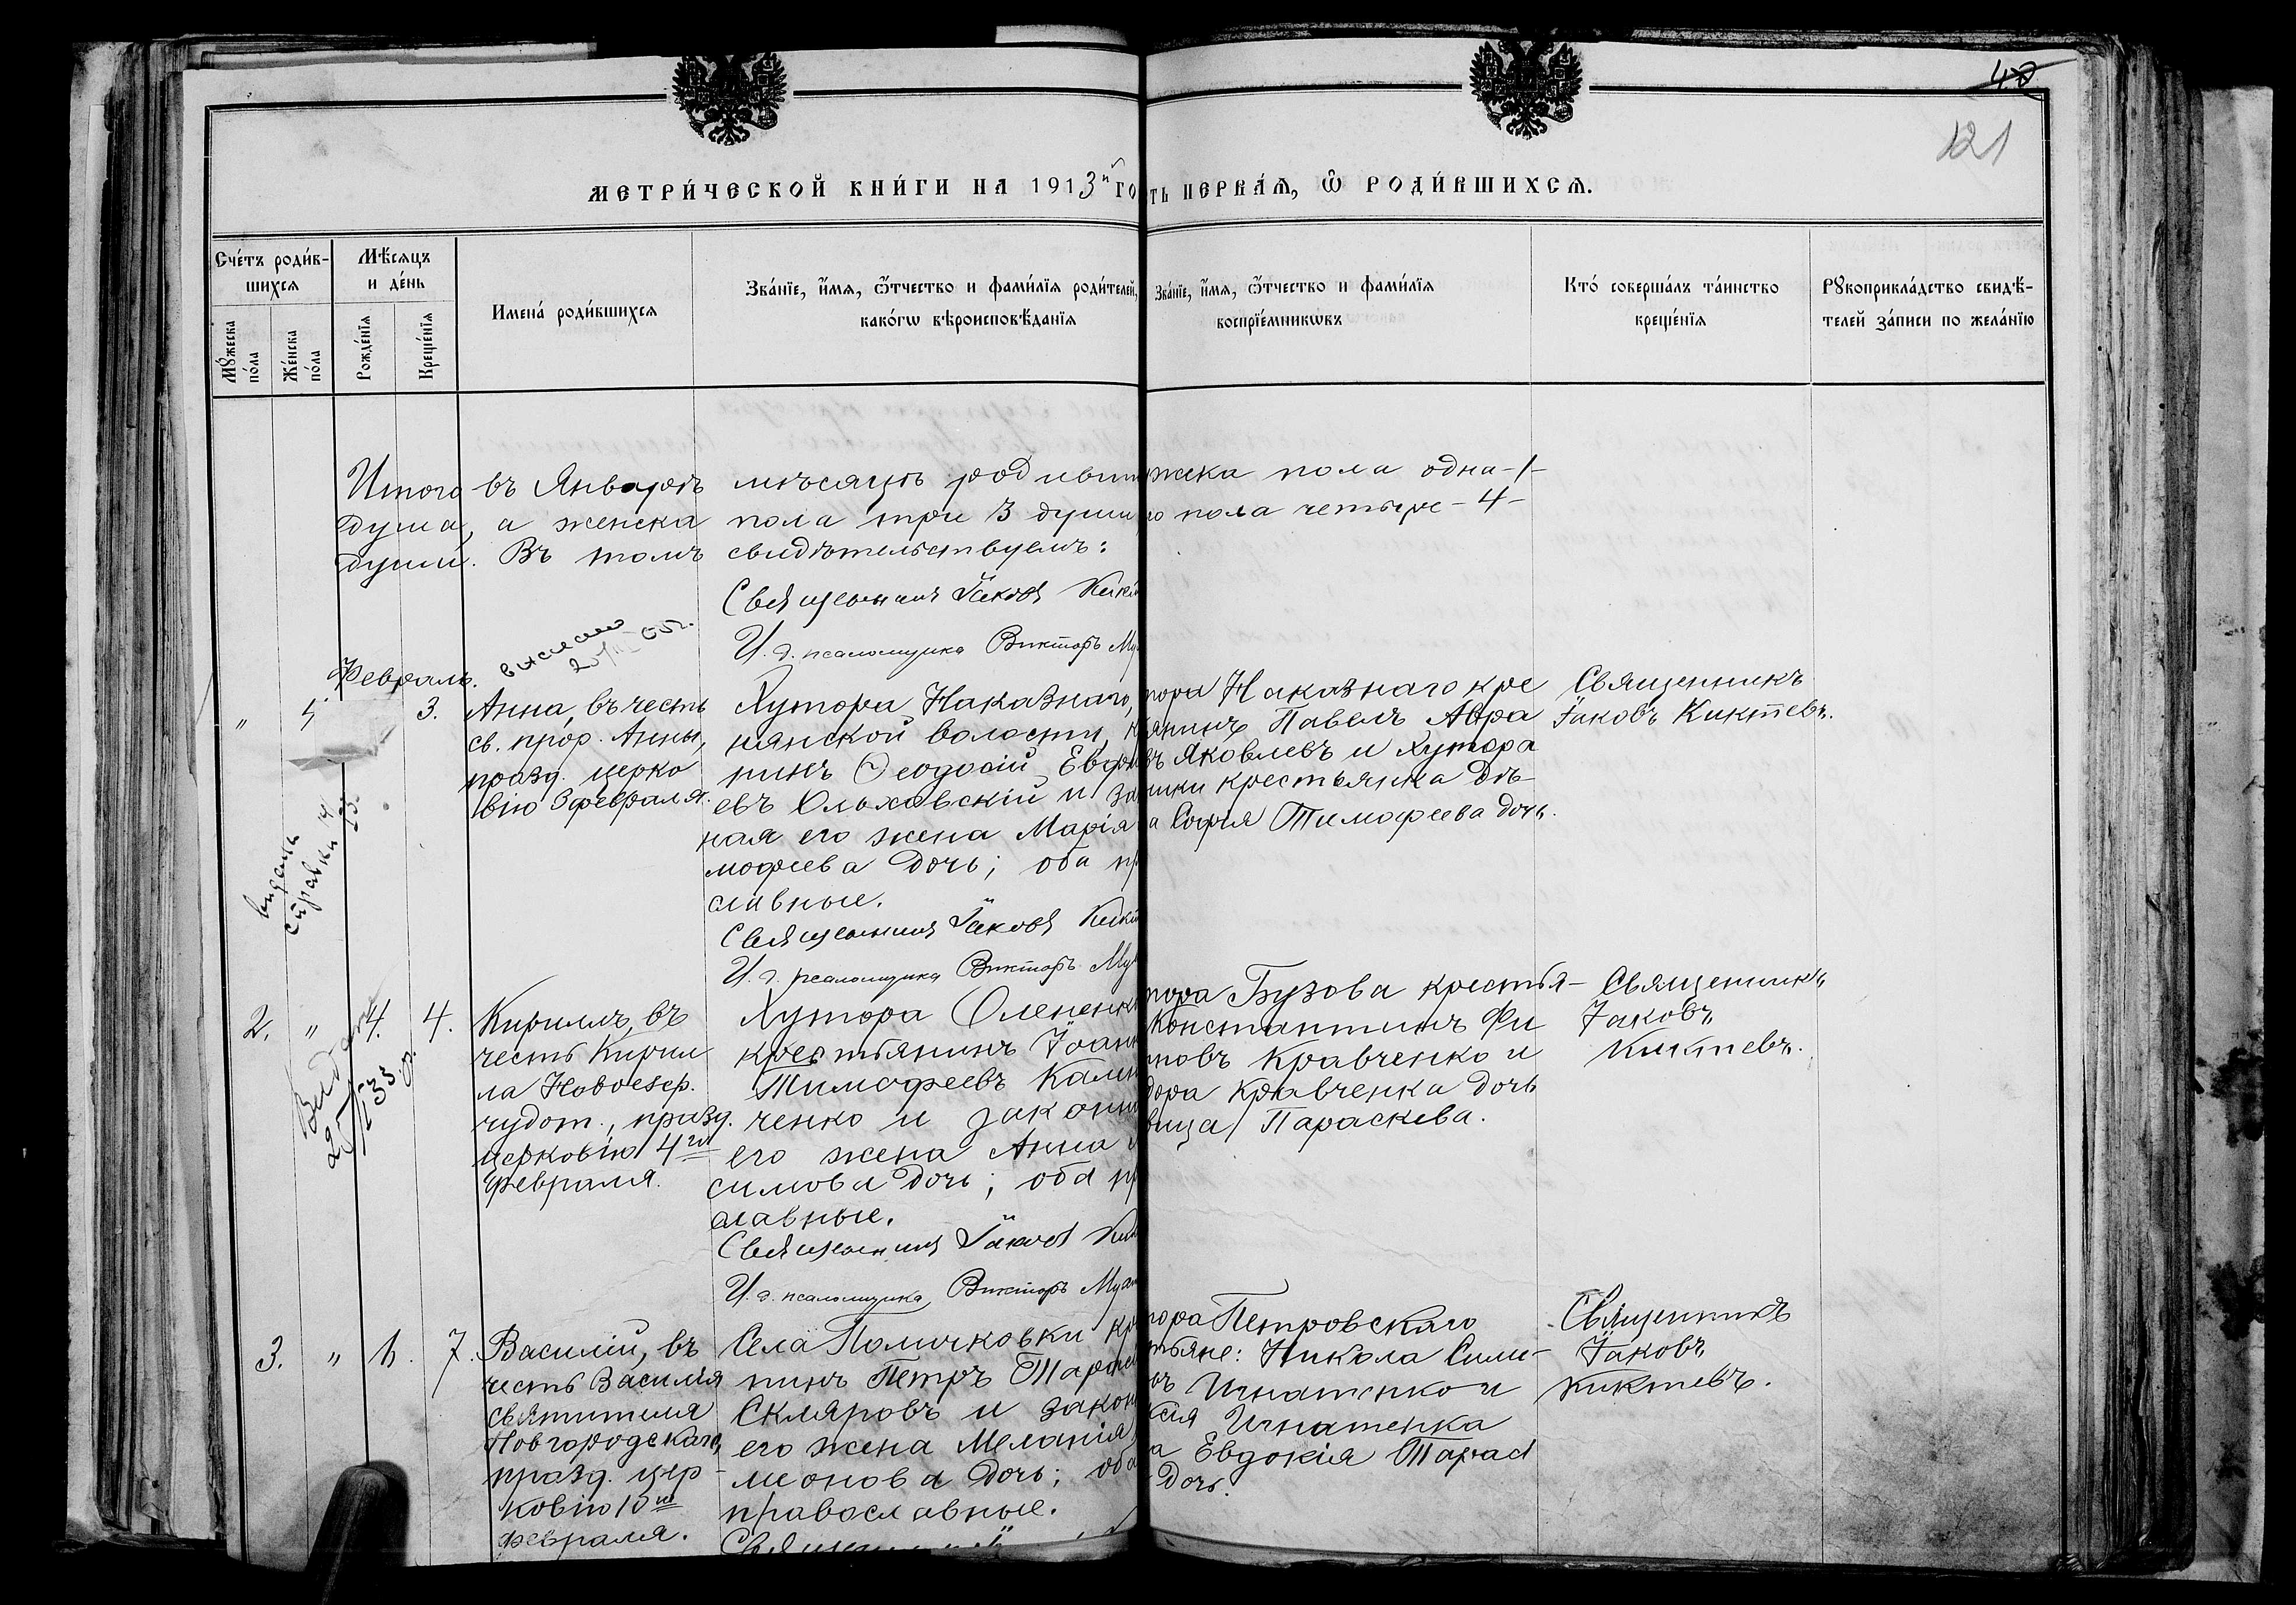 42
121
МЕТРИ́ЧЕСКОЙ КНИ́ГИ НА 1913й ГО
ТЬ ПЕРВА́Ѧ, Ѽ РОДИ́ВШИХСѦ.
Сче́тъ роди́в-
шихсѧ
Мѣ́сѧцъ
и де́нь
Мꙋ́жеска
по́ла
Же́нска
по́ла
Рожде́нїѧ
Креще́нїѧ
Имена́ роди́вшихсѧ
Зва́нїе, и҆́мѧ, ѻ҆́тчество и фами́лїѧ роди́телей,
како́гѡ вѣроисповѣ́данїѧ
Зва́нїе, и҆́мѧ, ѻ҆́тчество и фами́лїѧ
воспрїе́мникѡвъ
Кто́ соверша́лъ та́инство
креще́нїѧ
Рꙋкоприкла́дство свидѣ́-
телей за́писи по жела́нїю
Итого въ Январѣ мѣсяцѣ родивш
душа, а женска пола три 3 души
души. Въ томъ свидѣтельствуемъ:
Священникъ Іаковъ Кик
И. д. псаломщика Викторъ Му
жска пола одна -1-
го пола четыре - 4 -
Февраль.
" 5 3.
Анна, въ честь
св. прор. Анны,
празд. церко
вію 3 февраля.
Хутора Наказнаго,
нянской волости, к
нинъ Ѳеодосій Евфи
евъ Ольховскій и за
ная его жена Марія
мофеева дочь; оба пр
славные.
Священникъ Іаковъ Кик
И. д. псаломщика Викторъ Му
тора Наказнаго кре
янинъ Павелъ Авра
въ Яковлевъ и Хутора
ики крестьянка дѣ-
а Софія Тимофеева дочь.
Священникъ
Іаковъ Киктевъ.
выдана
справка 14
2. " 4. 4.
Кириллъ, въ
честь Кирил
ла Новоезер.
чудот., празд.
церковію 4го
февраля.
Хутора Олененк
крестьянинъ Іоанн
Тимофеевъ Кали
ченко и законн
его жена Анна
симова дочь; оба пр
славные.
Священникъ Іаковъ Ки
И. д. псаломщика Викторъ Му
тора Бузова крестья-
Константинъ Фи
повъ Кравченко и
дора Кравченка дочь
вица Параскева.
Священникъ
Іаковъ
Киктевъ.
3. " 6. 7.
Василій, въ
честь Василія
святителя
Новгородскаго,
празд. цер-
ковію 10го
февраля.
Села Помичковки кр
нинъ Петръ
Скляровъ и закон
его жена Меланія
меонова дочь; оба
православные.
тора Петровскаго
тьяне: Никола Сими-
ъ Игнатенко и
Игнатенка
а Евдокія Тарас
дочь.
Священникъ
Іаковъ
Киктевъ.